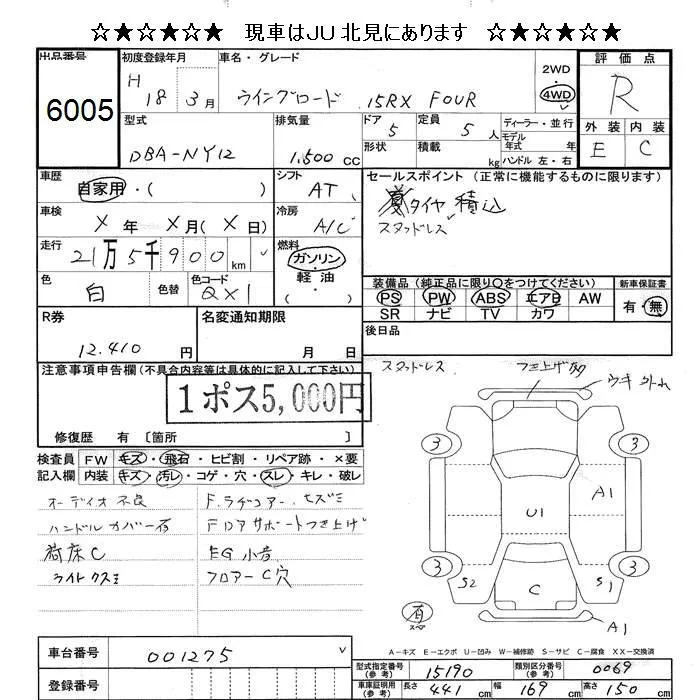 ☆★☆★☆★ 現車はJU北見にあります ☆★☆★☆★
出品番号 6005
初度登録年月 H 18 3月
車名・グレード ウイングロード 15RX FOUR
2WD 4WD
評価点 R
外装 E 内装 C
型式 DBA-NY12
排気量 1,500 cc
ドア 5 定員 5人
形状 積載 kg
ディーラー・並行
モデル年式 年
ハンドル 左・右
車歴 自家用・( )
シフト AT
セールスポイント(正常に機能するものに限ります)
夏タイヤ積込
スタッドレス
車検 X年 X月(X日)
冷房 A/C
走行 21万5千900km
燃料 ガソリン・軽油
( )
色 白 色替 色コード QX1
装備品(純正品に限り○をつけてください)
PS PW ABS エアB AW
SR ナビ TV カワ
新車保証書 有・無
R券 12,410円
名変通知期限 月 日
後日品
注意事項申告欄(不具合内容等は具体的に記入して下さい)
1ポス5,000円
修復歴 有〔箇所 〕
検査員記入欄
FW キズ・飛石・ヒビ割・リペア跡・×要
内装 キズ・汚レ・コゲ・穴・スレ・キレ・破レ
オーディオ不良
ハンドルカバー有
荷床C
ライトクスミ
F.ラヂコアー.ヒズミ
Fロアサポートつき上げ
EG小音
フロアーC穴
スタッドレス
つき上げ
ウキ外れ
3 3
A1
U1
3 3
S2 C S1
有 スペア
A1
A-キズ E-エクボ U-凹み W-補修跡 S-サビ C-腐食 XX-交換済
車台番号 001275
登録番号
型式指定番号(参考) 15190
類別区分番号(参考) 0069
車車証明用(参考) 長さ 441cm 幅 169cm 高さ 150cm